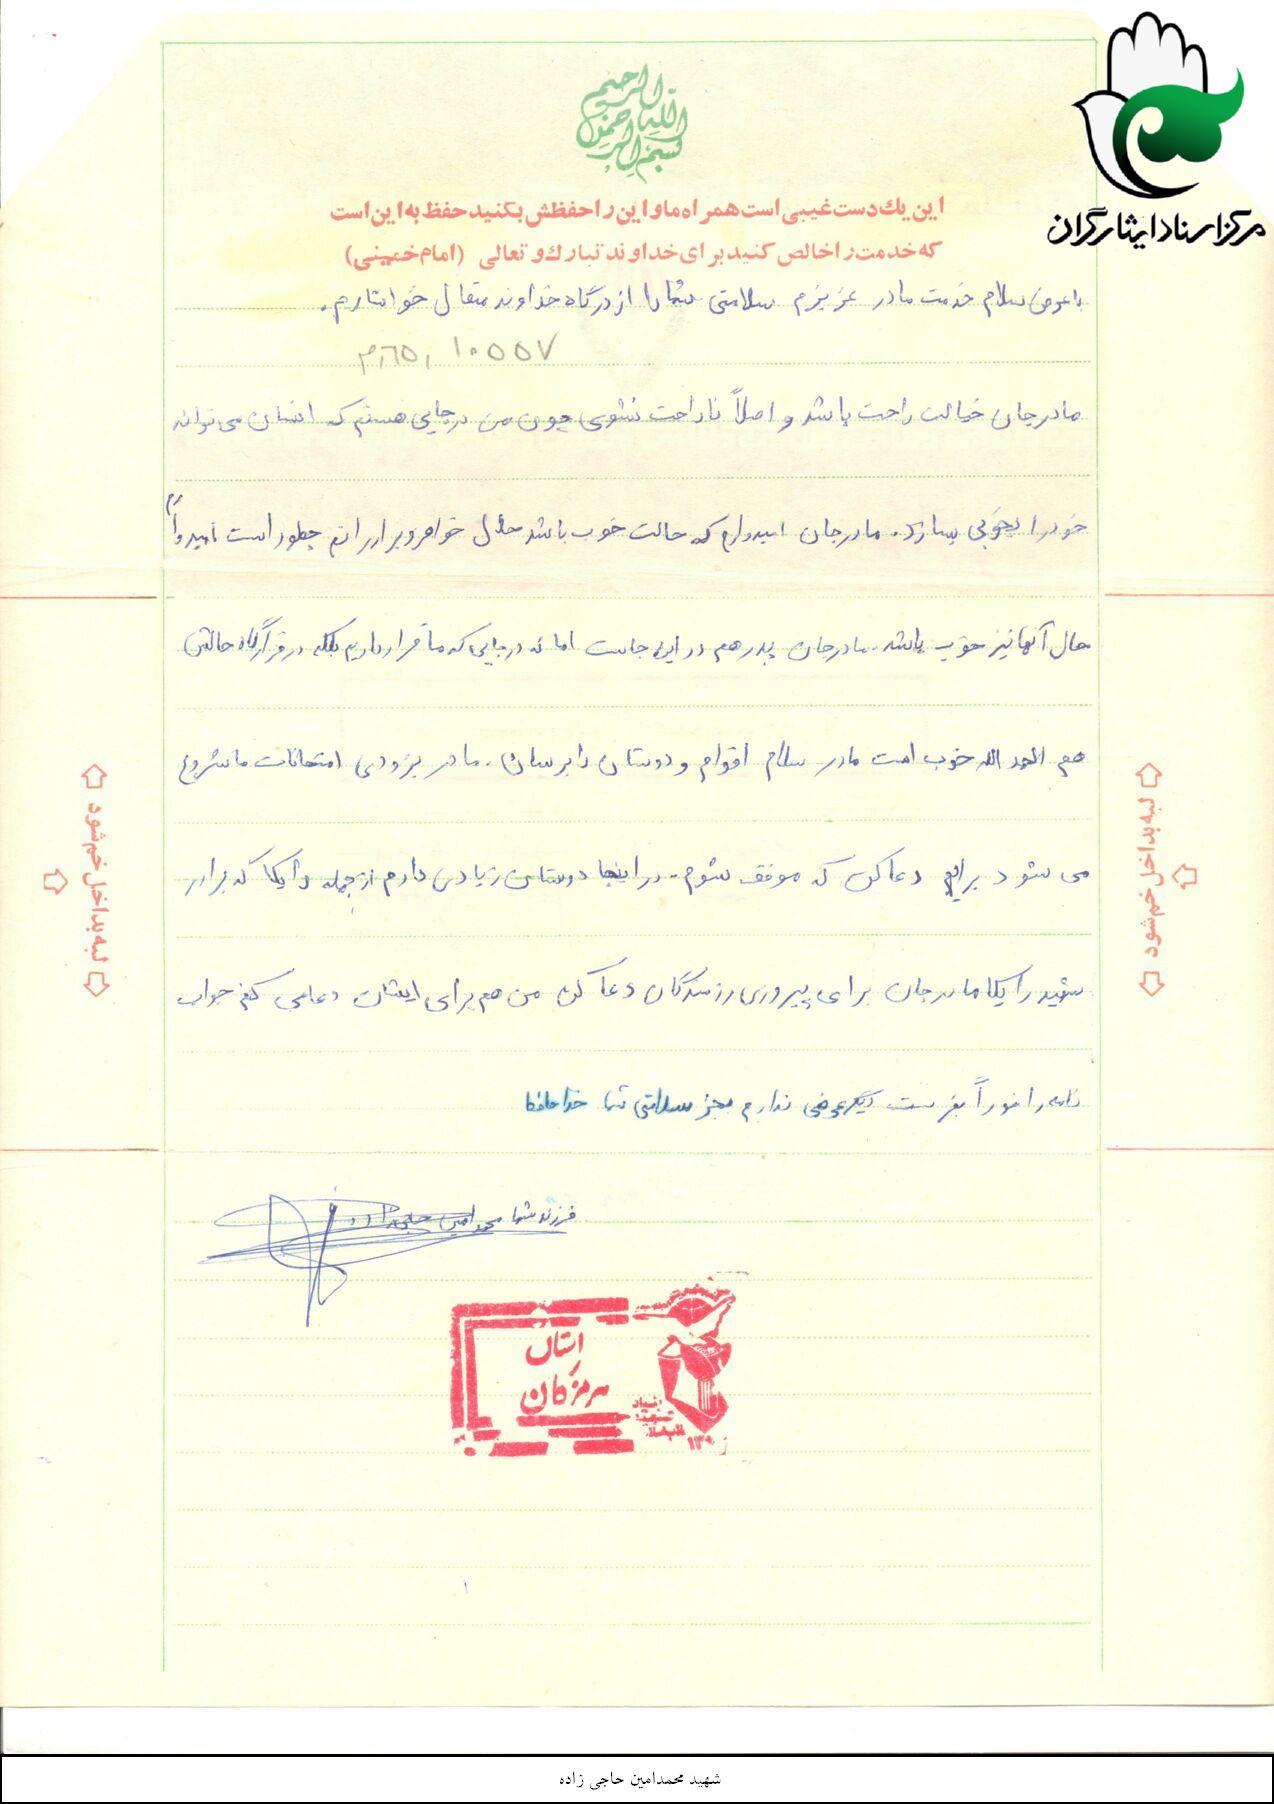 بسم الله الرحمن الرحیم
مرکز اسناد ایثارگران
این یك دست غیبی است همراه ما و این را حفظش بکنید حفظ به این است
که خدمت را خالص کنید برای خداوند تبارك و تعالی (امام خمینی)
با عرض سلام خدمت مادر عزیزم سلامتی شما را از درگاه خداوند متعال خواستارم.
۱۰۵۵۷
مادرجان خیالت راحت باشد و اصلاً ناراحت نشوی چون من در جایی هستم که انسان می تواند
خود را بخوبی بسازد. مادرجان امیدوارم که حالت خوب باشد حال خواهر و برادرانم چطور است امیدوارم
حال آنها نیز خوب باشد. مادرجان پدر هم در این جاست اما نه در جایی که ما قرار داریم بلکه در قرارگاه حالش
هم الحمد الله خوب است مادر سلام اقوام و دوستان را برسان. مادر بزودی امتحانات ما شروع
می شود برایم دعا کن که موفق شوم. در اینجا دوستان زیادی دارم از جمله که برادر
شهید مادرجان برای پیروزی رزمندگان دعا کن من هم برای ایشان دعا می کنم جواب
نامه را فوراً بفرست دیگر عرضی ندارم بجز سلامتی شما خداحافظ
فرزند شما محمدامین حاجی زاده
استان
هرمزگان
بنیاد
شهید
لبه بداخل خم شود
لبه بداخل خم شود
شهید محمدامین حاجی زاده